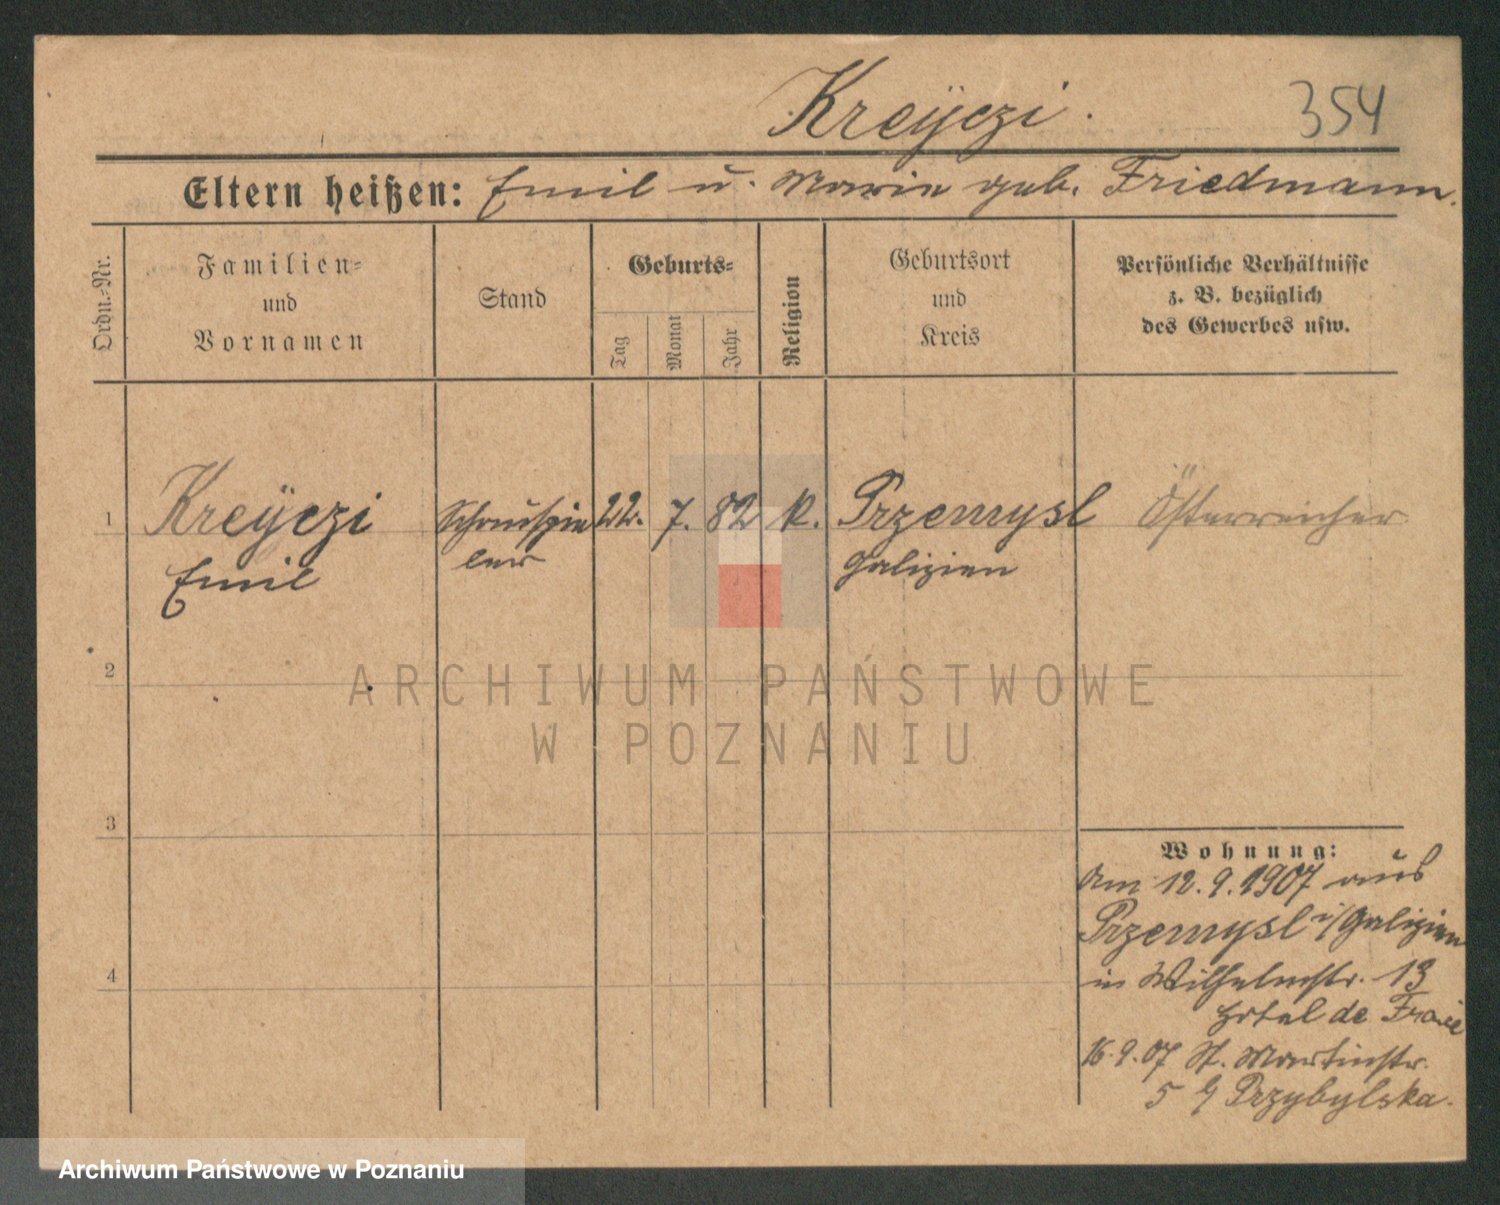 Kreÿczi.
354
Eltern heißen: Emil u. Marie geb. Friedmann.
Ordn.-Nr.
Familien-
und
Vornamen
Stand
Geburts-
Tag
Monat
Jahr
Religion
Geburtsort
und
Kreis
Persönliche Verhältnisse
z. B. bezüglich
des Gewerbes usw.
1 Kreÿczi Schauspie 22. 7. 82 k. Przemysl Österreicher
Emil ler Galizien
2
ARCHIWUM PAŃSTWOWE
W POZNANIU
3
Wohnung:
Am 12.9.1907 aus
Przemysl i/Galizien
4
in Wilhelmstr. 13
Hotel de
16.9.07 St. Martinstr.
5 Przybylska.
Archiwum Państwowe w Poznaniu